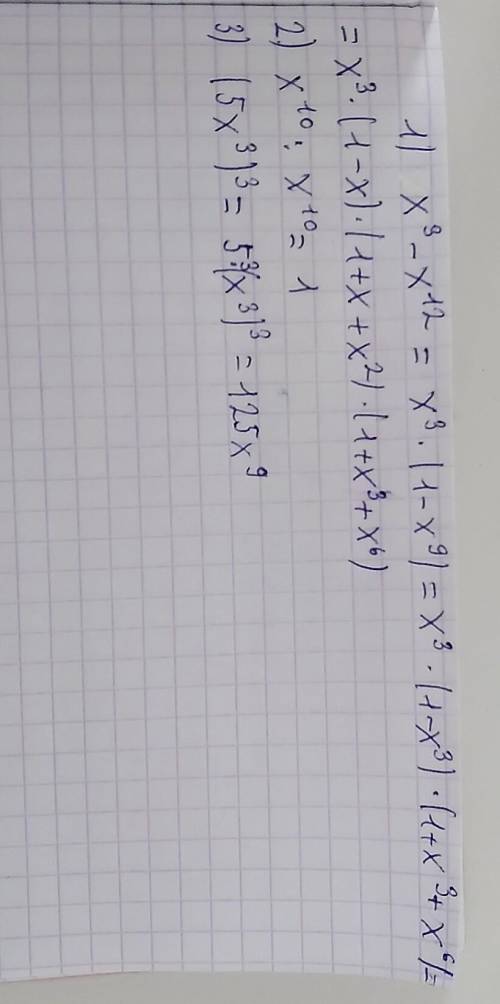 1) x³ - x¹² = x³ · (1 - x⁹) = x³ · (1 - x³) · (1 + x³ + x⁶) =
= x³ · (1 - x) · (1 + x + x²) · (1 + x³ + x⁶)
2) x¹⁰ : x¹⁰ = 1
3) (5x³)³ = 5³·(x³)³ = 125x⁹